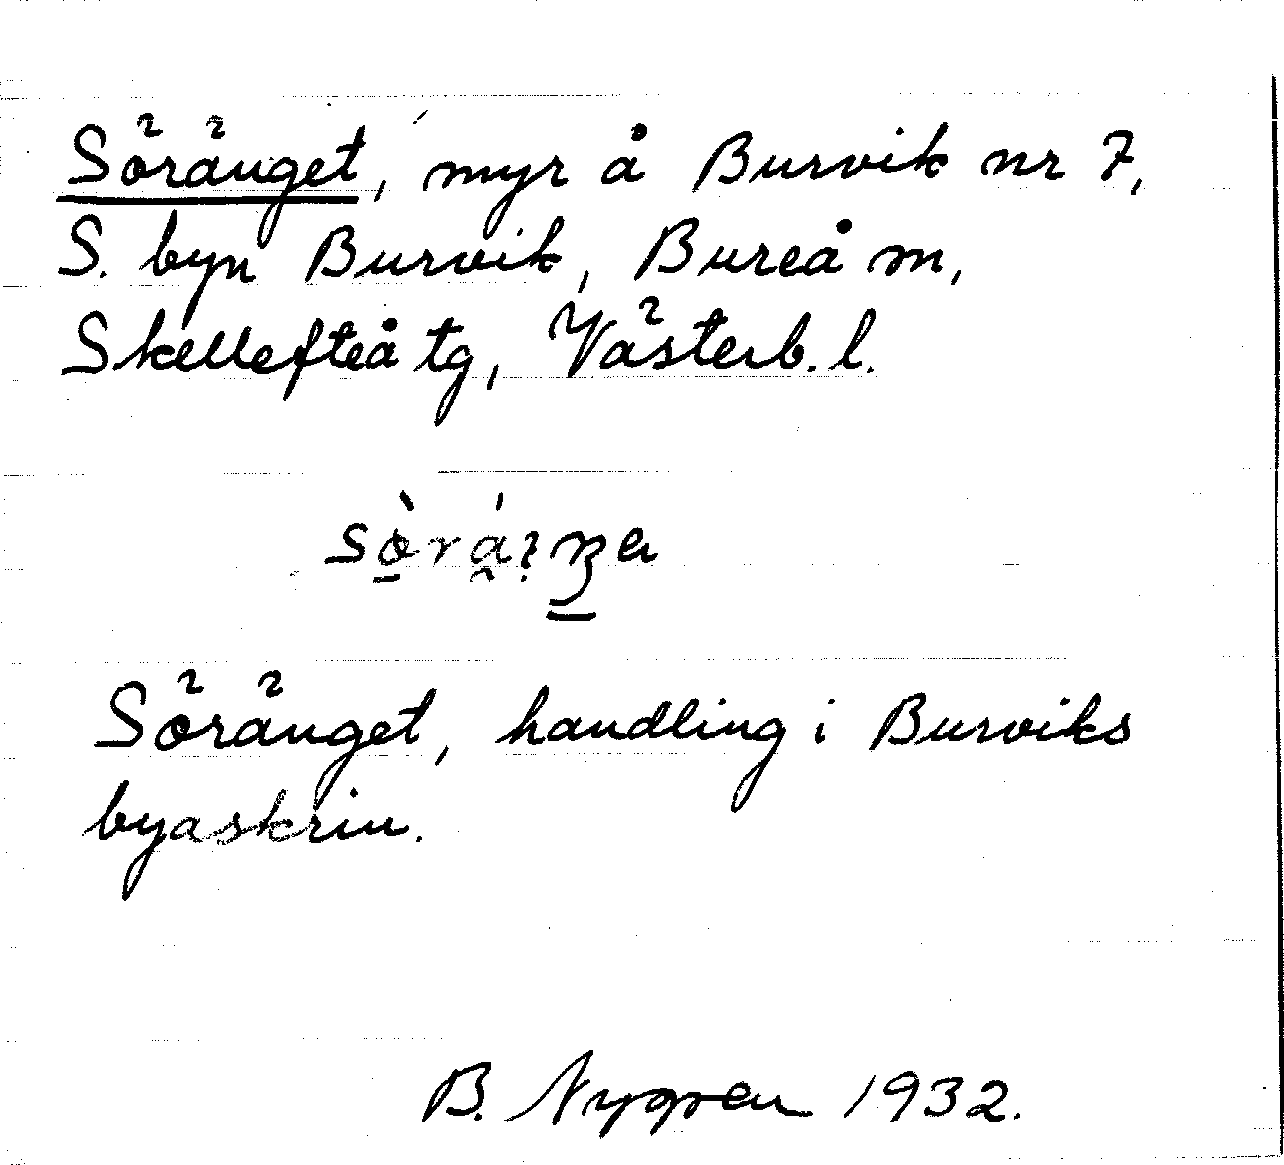 Söränget, myr å Burvik nr 7,
S. byn Burvik, Bureå m,
Skellefteå tg, Västerb. l.
Söränget, handling i Burviks
byaskrin.
B. Nygren 1932.